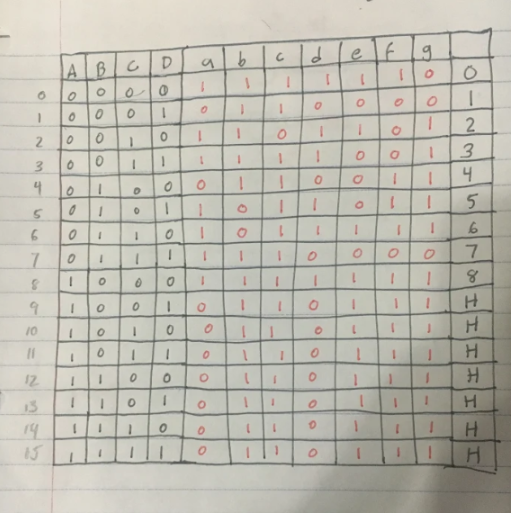 A B C D a b c d e f g
0 0 0 0 0 1 1 1 1 1 1 0 0
1 0 0 0 1 0 1 1 0 0 0 0 1
2 0 0 1 0 1 1 0 1 1 0 1 2
3 0 0 1 1 1 1 1 1 0 0 1 3
4 0 1 0 0 0 1 1 0 0 1 1 4
5 0 1 0 1 1 0 1 1 0 1 1 5
6 0 1 1 0 1 0 1 1 1 1 1 6
7 0 1 1 1 1 1 1 0 0 0 0 7
8 1 0 0 0 1 1 1 1 1 1 1 8
9 1 0 0 1 0 1 1 0 1 1 1 H
10 1 0 1 0 0 1 1 0 1 1 1 H
11 1 0 1 1 0 1 1 0 1 1 1 H
12 1 1 0 0 0 1 1 0 1 1 1 H
13 1 1 0 1 0 1 1 0 1 1 1 H
14 1 1 1 0 0 1 1 0 1 1 1 H
15 1 1 1 1 0 1 1 0 1 1 1 H